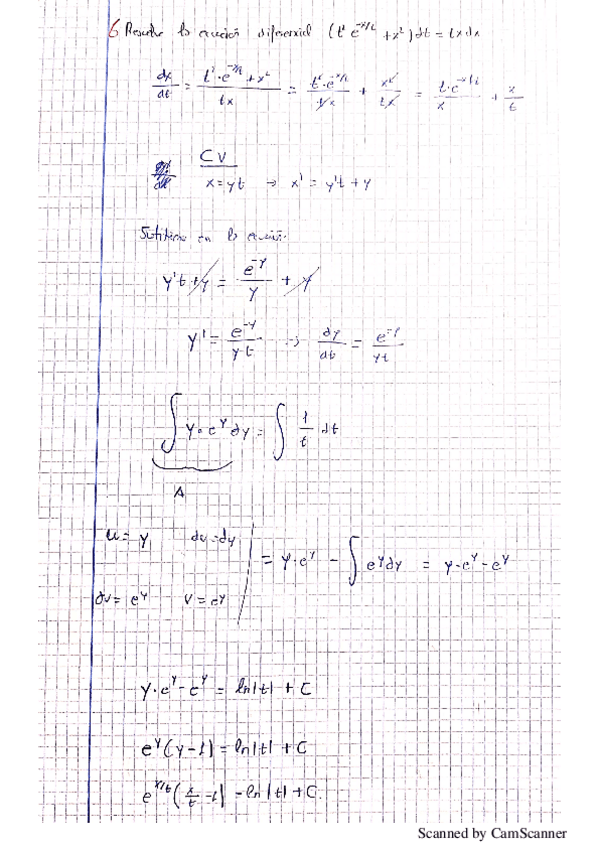 6 Resolver la ecuación diferencial (t² e^(-x/t) + x²) dt = tx dx
dx/dt = (t²·e^(-x/t) + x²)/(tx) = (t²·e^(-x/t))/(tx) + x²/(tx) = (t·e^(-x/t))/x + x/t
CV
x = yt → x' = y't + y
Sustituimos en la ecuación:
y't + y = e^(-y)/y + y
y' = e^(-y)/(y·t) → dy/dt = e^(-y)/(yt)
∫ y·e^y dy = ∫ 1/t dt
A
u = y du = dy = y·e^y - ∫ e^y dy = y·e^y - e^y
dv = e^y v = e^y
y·e^y - e^y = ln|t| + C
e^y (y-1) = ln|t| + C
e^(x/t) (x/t - 1) = ln|t| + C.
Scanned by CamScanner